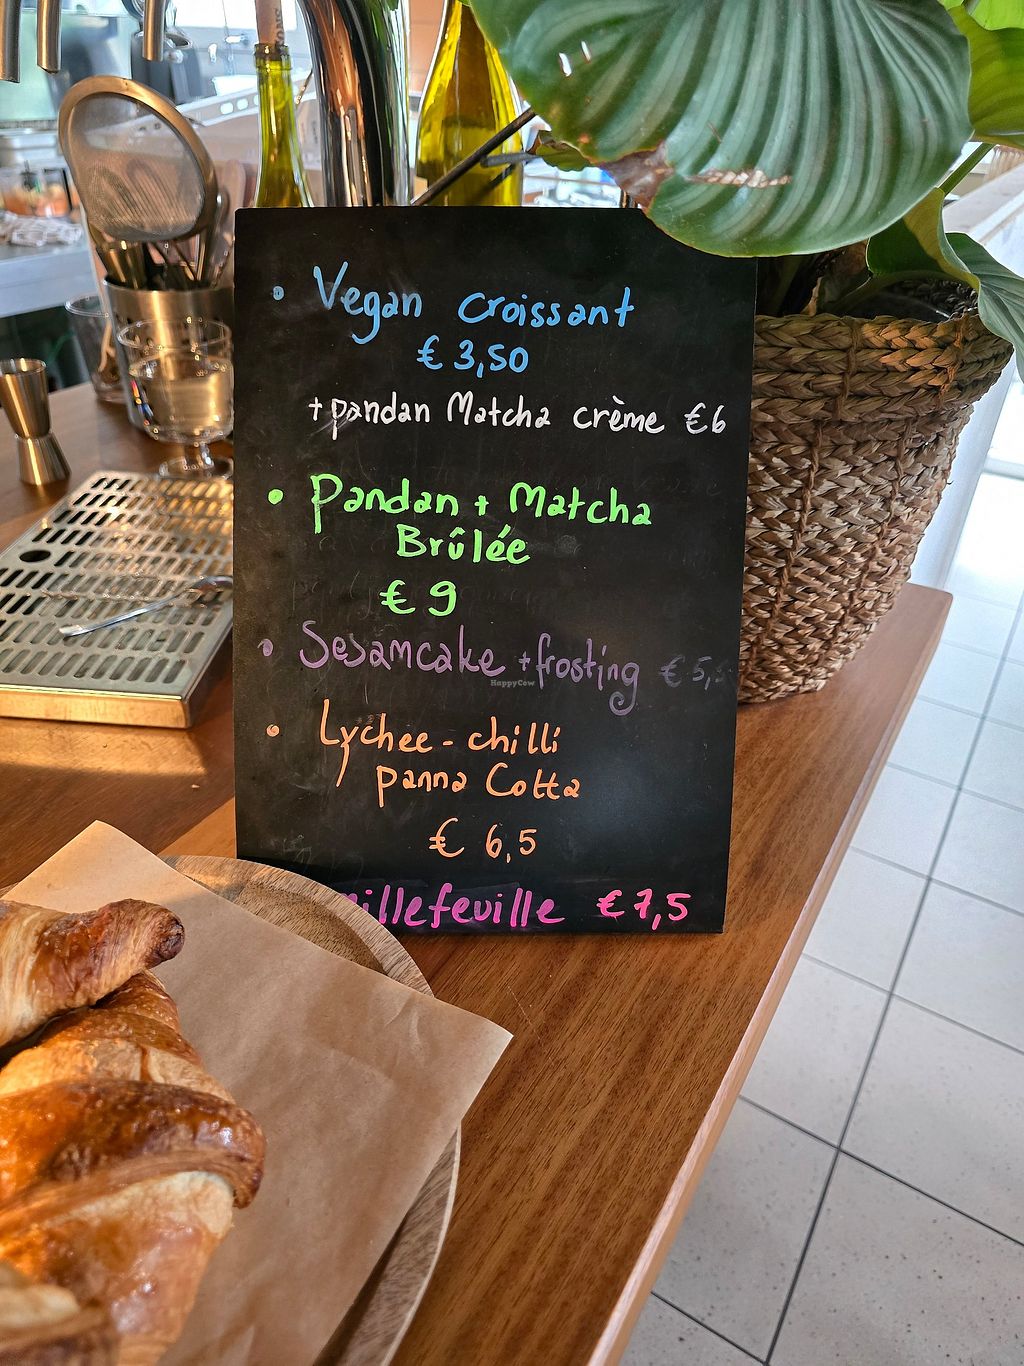 • Vegan croissant
€ 3,50
+ pandan Matcha crème €6
• Pandan + Matcha
Brûlée
€ 9
• Sesamcake + frosting € 5,
HappyCow
• Lychee - chilli
panna Cotta
€ 6,5
millefeuille € 7,5